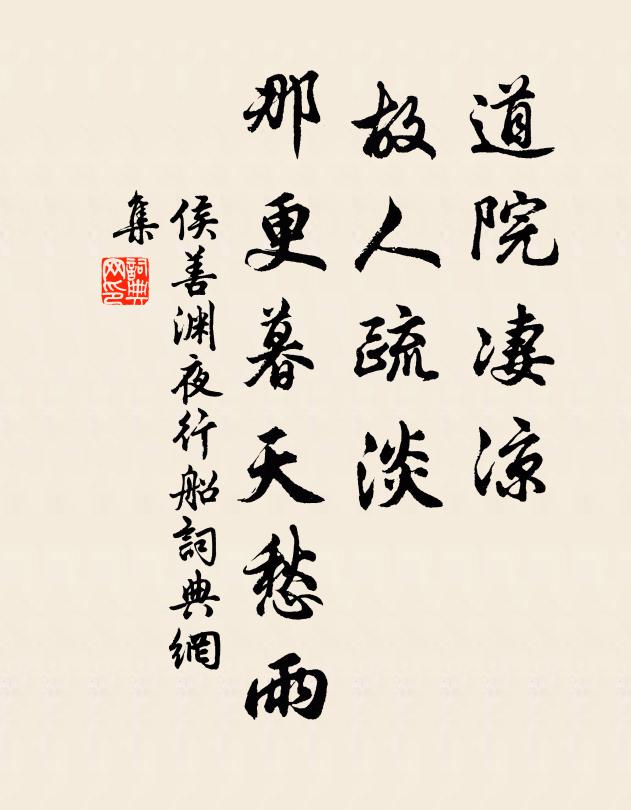 道院凄凉
故人疏淡
那更暮天愁雨
侯善渊夜行船詞典網
集
詞典
网印